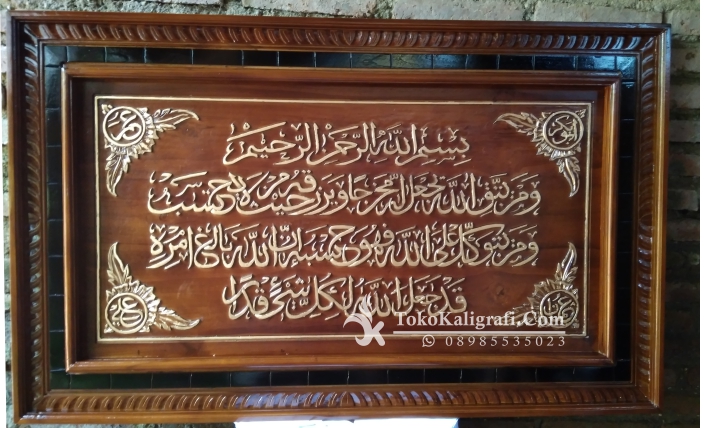 عمر
ابوبكر
بِسْمِ اللهِ الرَّحْمٰنِ الرَّحِيْمِ
وَمَنْ يَتَّقِ اللهَ يَجْعَلْ لَهُ مَخْرَجًا وَيَرْزُقْهُ مِنْ حَيْثُ لَا يَحْتَسِبُ
وَمَنْ يَتَوَكَّلْ عَلَى اللهِ فَهُوَ حَسْبُهُ اِنَّ اللهَ بَالِغُ اَمْرِهِ
قَدْ جَعَلَ اللهُ لِكُلِّ شَيْءٍ قَدْرًا
علي
TokoKaligrafi.Com
08985535023